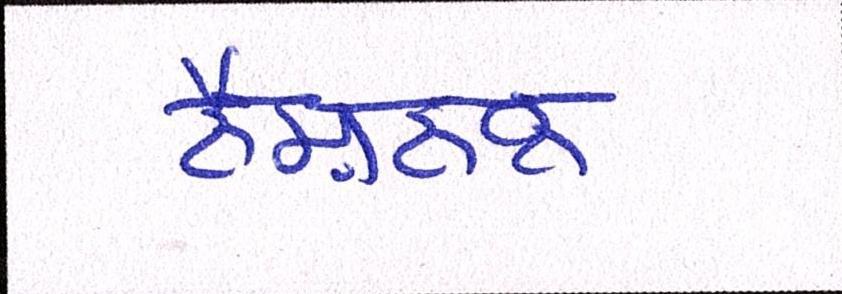 ਨੈਸ਼ਨਲ